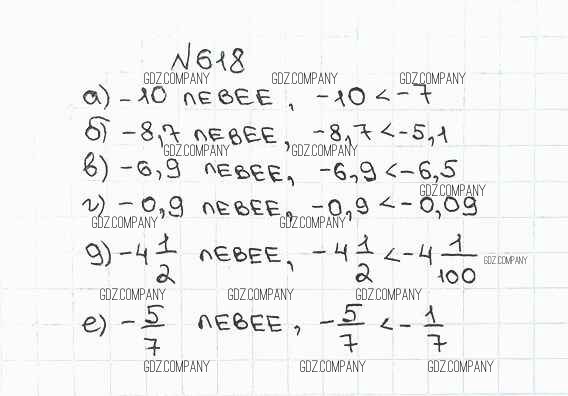 №618
GDZ.COMPANY GDZ.COMPANY GDZ.COMPANY
а) -10 ЛЕВЕЕ, -10 < -7
б) -8,7 ЛЕВЕЕ, -8,7 < -5,1
GDZ.COMPANY GDZ.COMPANY
в) -6,9 ЛЕВЕЕ, -6,9 < -6,5
GDZ.COMPANY
г) -0,9 ЛЕВЕЕ, -0,9 < -0,09
GDZ.COMPANY GDZ.COMPANY
д) -4 1/2 ЛЕВЕЕ, -4 1/2 < -4 1/100
GDZ.COMPANY
GDZ.COMPANY GDZ.COMPANY GDZ.COMPANY
е) -5/7 ЛЕВЕЕ, -5/7 < -1/7
GDZ.COMPANY GDZ.COMPANY GDZ.COMPANY